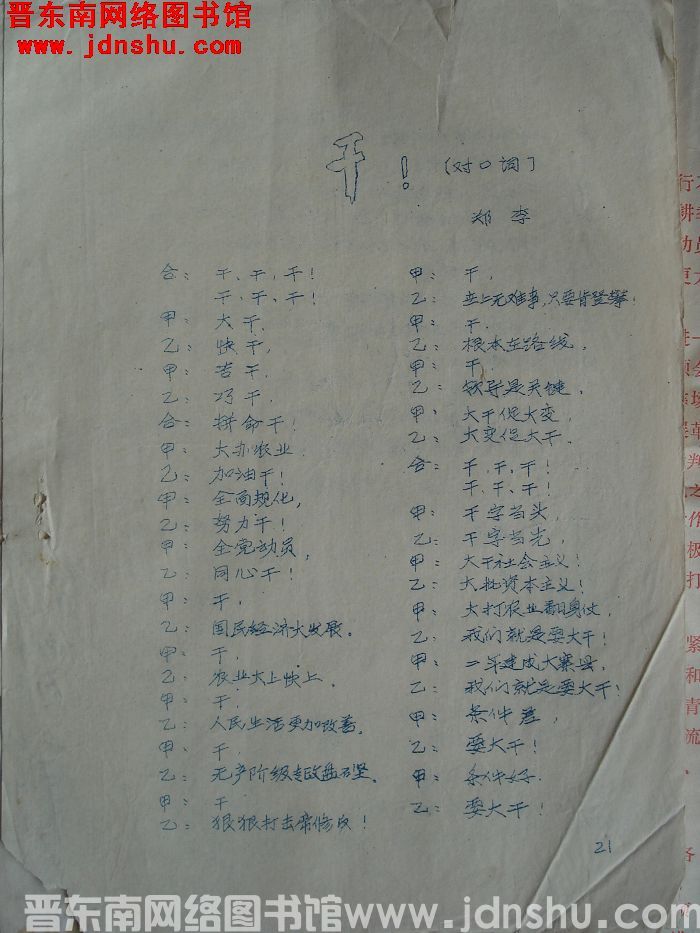 晋东南网络图书馆
www.jdnshu.com
干! (对口词)
郑 李
合: 干、干、干!
干、干、干!
甲: 大干,
乙: 快干,
甲: 苦干,
乙: 巧干,
合: 拼命干!
甲: 大办农业
乙: 加油干!
甲: 全面规化,
乙: 努力干!
甲: 全党动员,
乙: 同心干!
甲: 干,
乙: 国民经济大发展。
甲: 干,
乙: 农业大上快上,
甲: 干,
乙: 人民生活更加改善,
甲: 干,
乙: 无产阶级专政坚。
甲: 干
乙: 狠狠打击帝修反!
甲: 干,
乙: 世上无难事,只要肯登攀!
甲: 干,
乙: 根本在路线,
甲: 干,
乙: 领导是关键,
甲: 大干促大变,
乙: 大变促大干,
合: 干、干、干!
干、干、干!
甲: 干字当头,
乙: 干字当先,
甲: 大干社会主义!
乙: 大批资本主义!
甲: 大打农业翻身仗,
乙: 我们就是要大干!
甲: 二年建成大寨县,
乙: 我们就是要大干!
甲: 条件差,
乙: 要大干!
甲: 条件好,
乙: 要大干!
21
晋东南网络图书馆 www.jdnshu.com